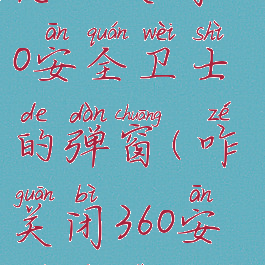 ān quán wèi shì
0安全卫士
de dàn chuāng zé
的弹窗(咋
guān bì ān
关闭360安